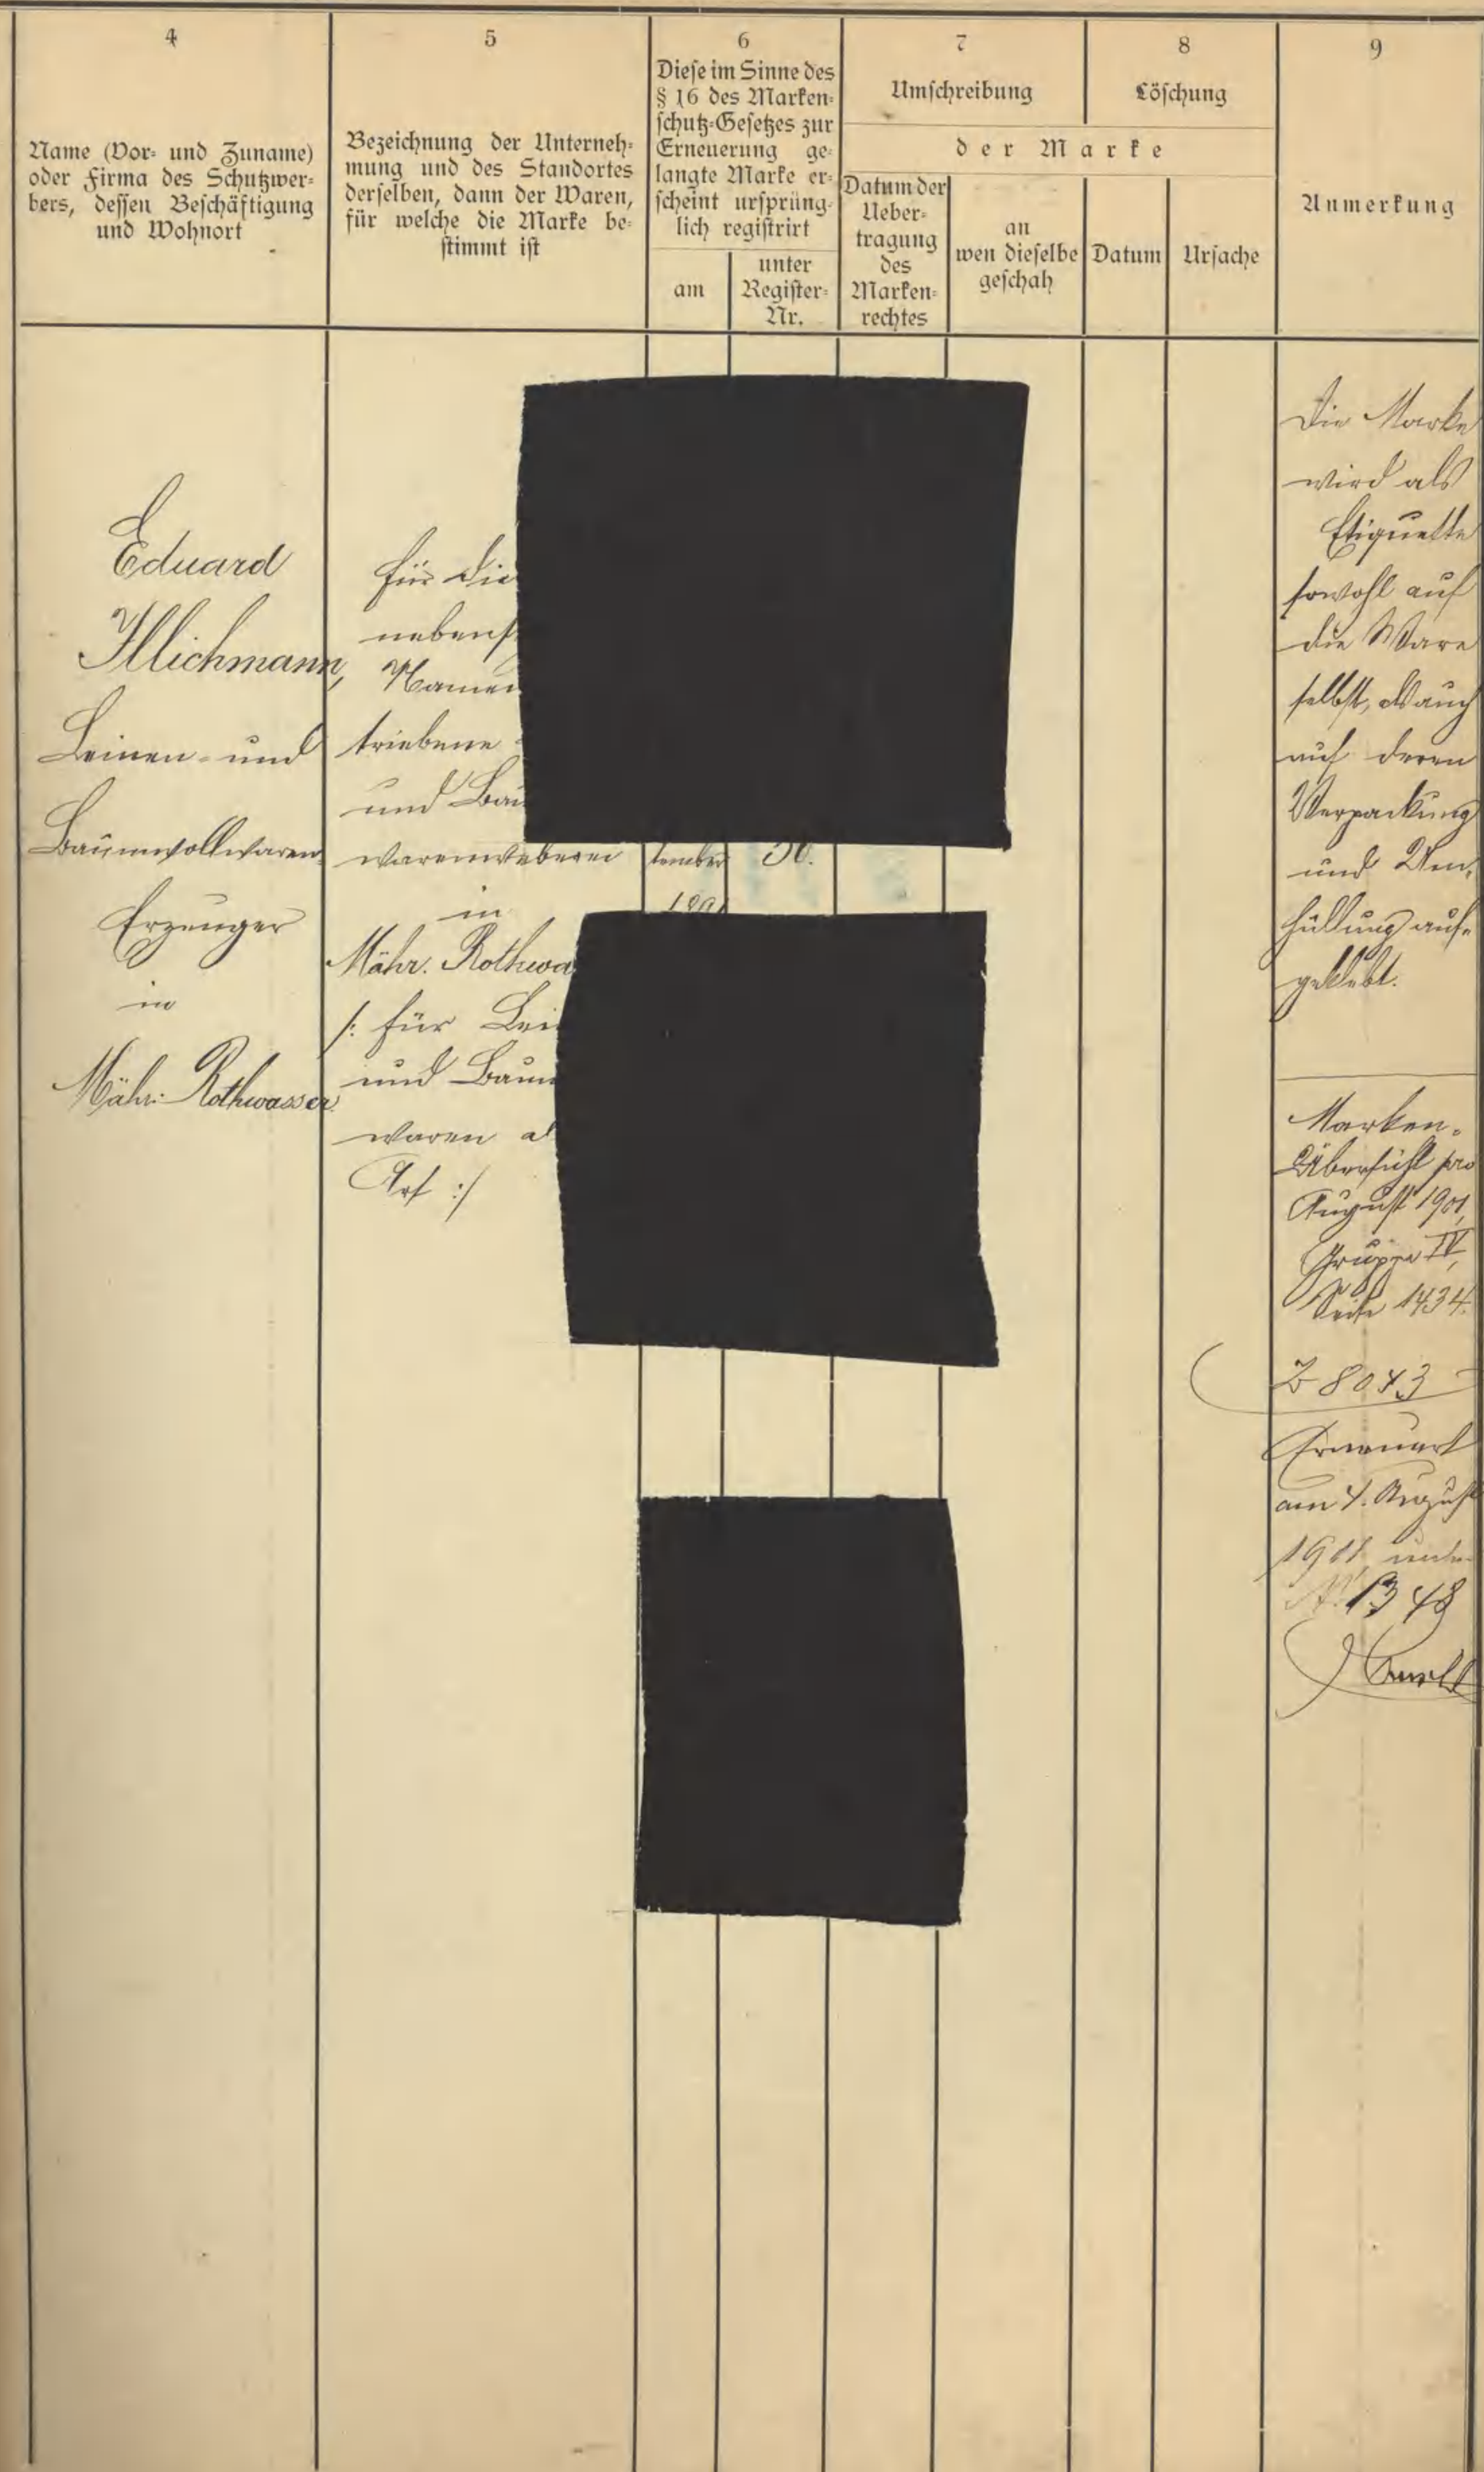 4
Name (Vor- und Zuname)
oder Firma des Schutzwer-
bers, dessen Beschäftigung
und Wohnort
5
Bezeichnung der Unterneh-
mung und des Standortes
derselben, dann der Waren,
für welche die Marke be-
stimmt ist
6
Diese im Sinne des
§ 16 des Marken-
schutz-Gesetzes zur
Erneuerung ge-
langte Marke er-
scheint ursprüng-
lich registrirt
am
unter
Register-
Nr.
7
Umschreibung
8
Löschung
der Marke
Datum der
Ueber-
tragung
des
Marken-
rechtes
an
wen dieselbe
geschah
Datum
Ursache
9
Anmerkung
Eduard
Illichmann,
Leinen- und
Baumwollwaren
Erzeuger
in
Mähr. Rothwasser
für die
nebens
Namen
triebene
und Bau
warenweberei
in
Mähr. Rothwa
/: für Lei
und Baum
waren al
Art :/
tember
189
Die Marke
wird als
Etiquette
sowohl auf
die Ware
selbst, als auch
auf deren
Verpackung
und Um-
hüllung auf-
geklebt.
Marken-
Übersicht pro
August 1901,
Gruppe IV,
Seite 1434.
Z 8043
Erneuert
am 4. August
1911 unter
Nr. 1348